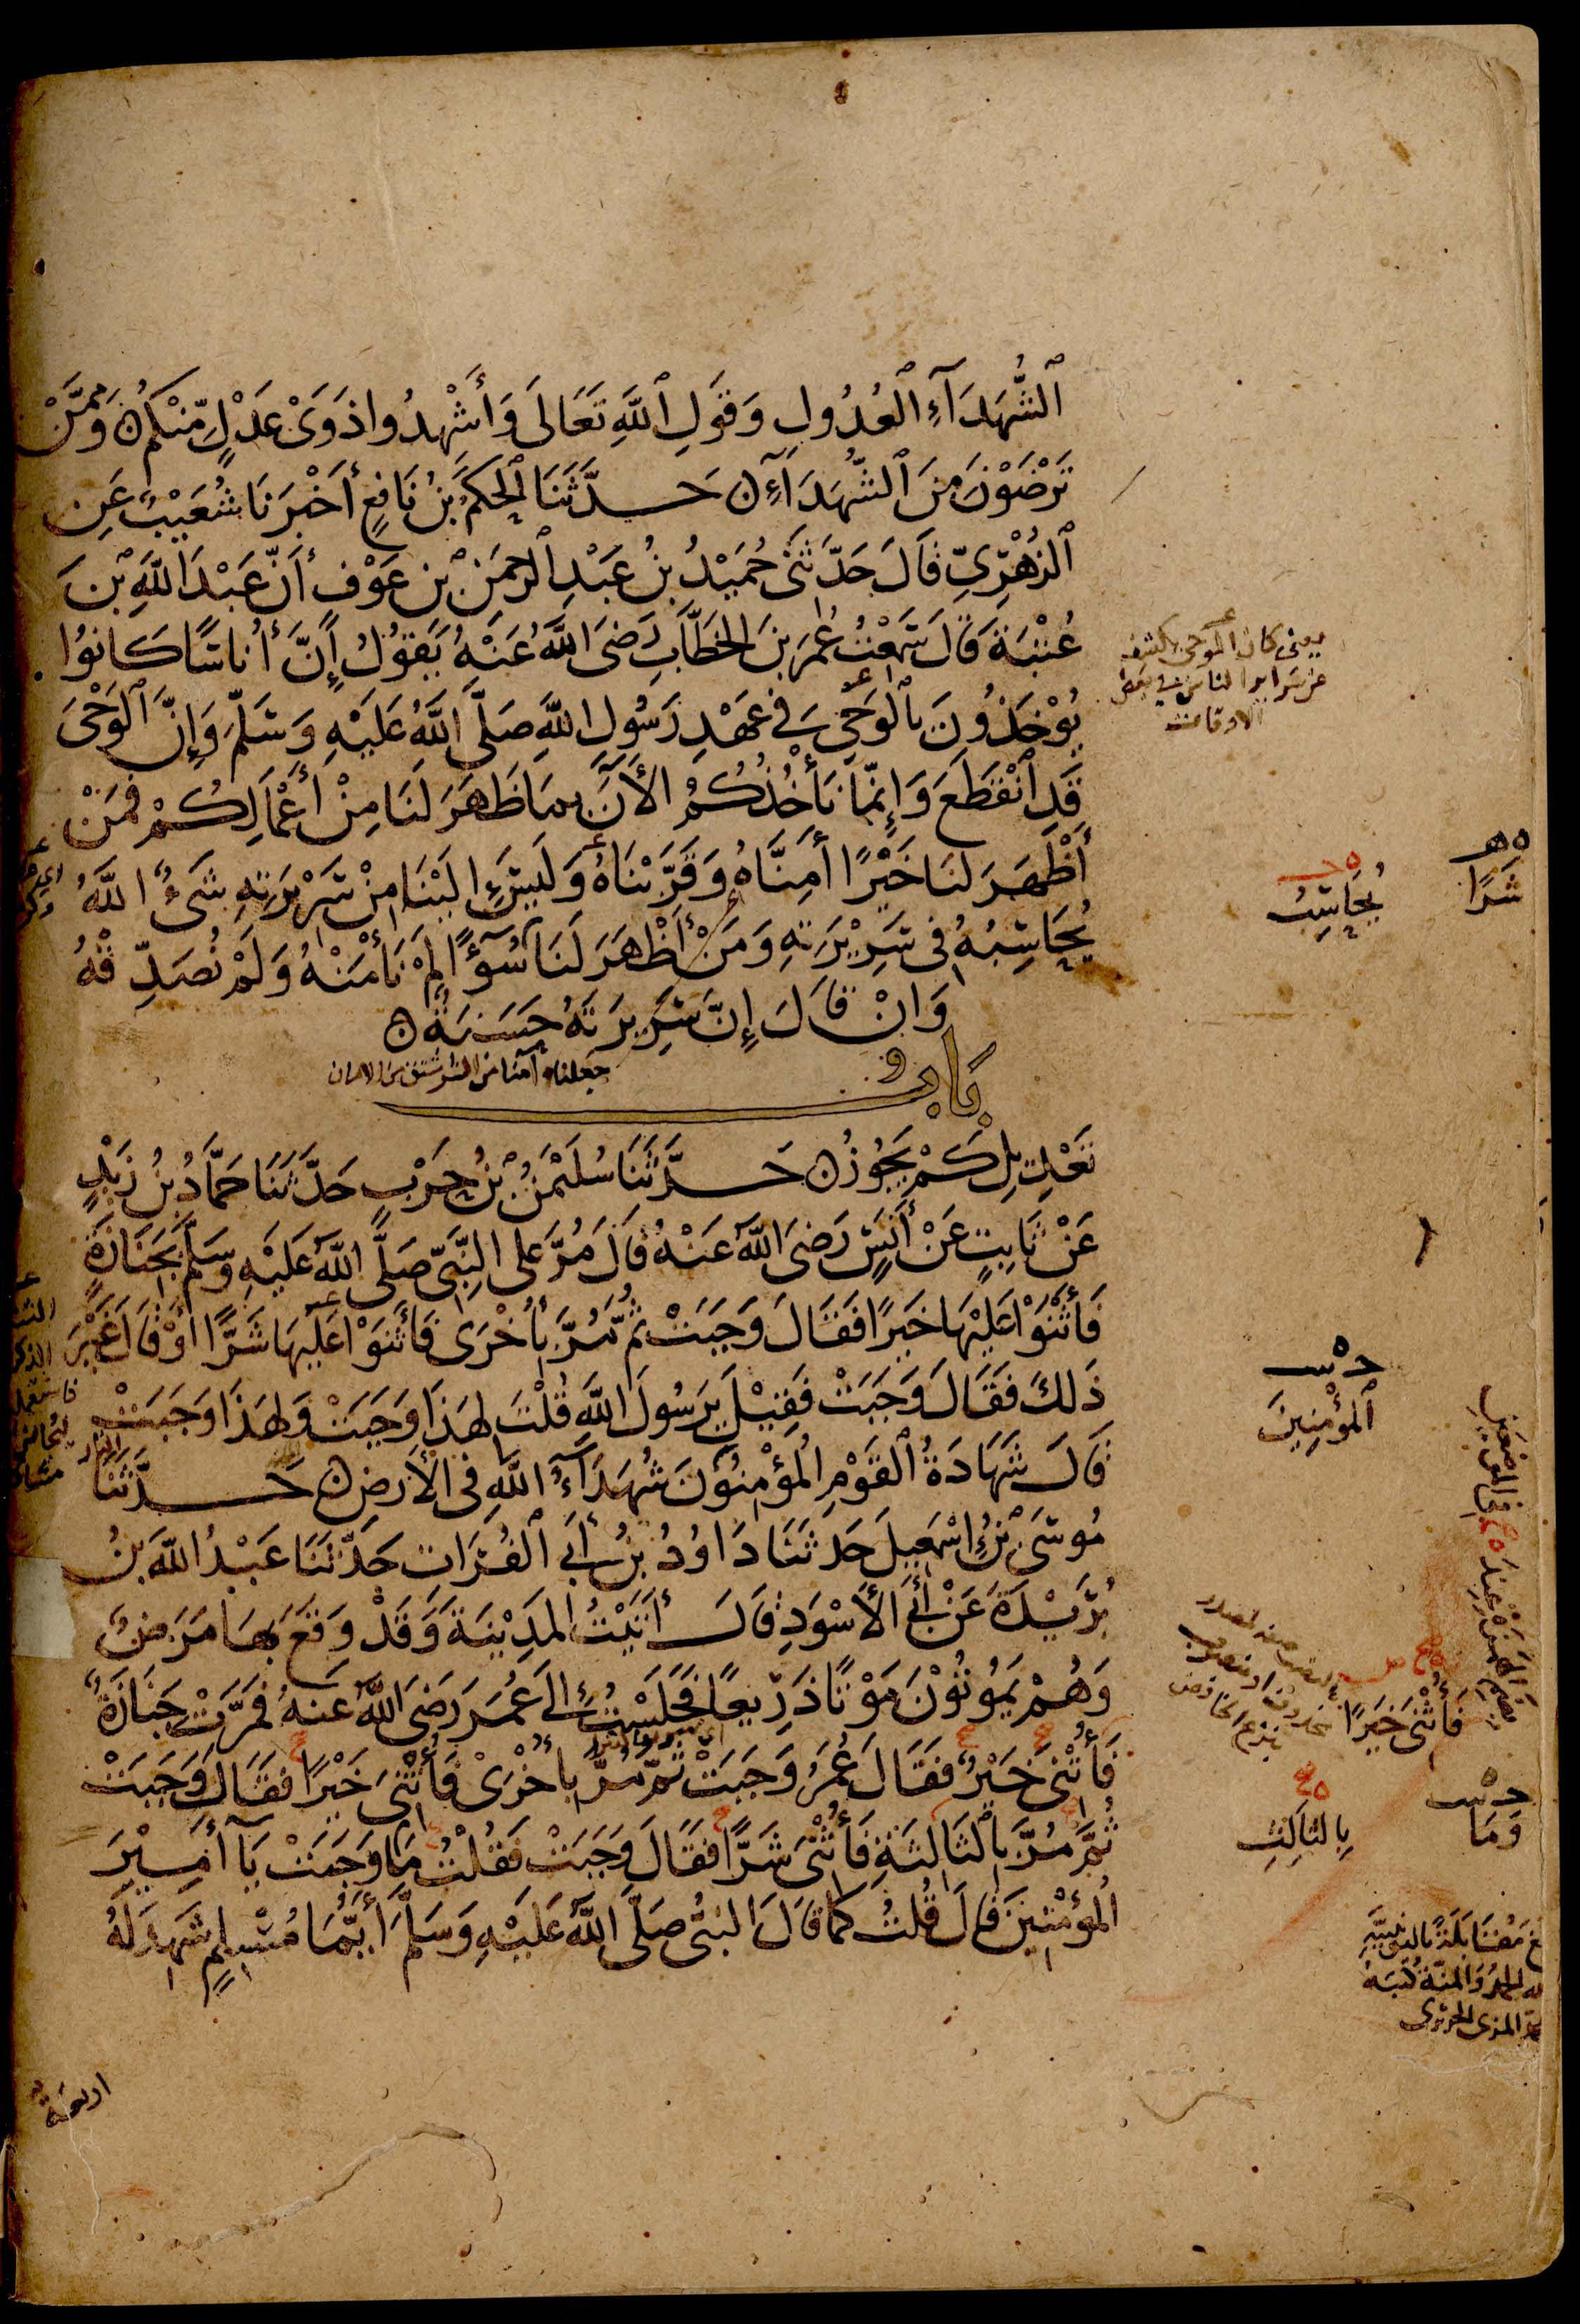 ٱلشُّهَدَآءِ ٱلْعُدُولِ وَقَوْلِ ٱللَّهِ تَعَالَى وَأَشْهِدُوا ذَوَىْ عَدْلٍ مِّنْكُمْ وَمِمَّنْ
تَرْضَوْنَ مِنَ ٱلشُّهَدَآءِ حَدَّثَنَا ٱلْحَكَمُ بْنُ نَافِعٍ أَخْبَرَنَا شُعَيْبٌ عَنِ
ٱلزُّهْرِيِّ قَالَ حَدَّثَنِى حُمَيْدُ بْنُ عَبْدِ ٱلرَّحْمَنِ بْنِ عَوْفٍ أَنَّ عَبْدَ اللَّهِ بْنَ
عُتْبَةَ قَالَ سَمِعْتُ عُمَرَ بْنَ الخَطَّابِ رَضِىَ اللَّهُ عَنْهُ يَقُولُ إِنَّ أُنَاسًا كَانُوا
يُؤْخَذُونَ بِٱلْوَحْيِ فِى عَهْدِ رَسُولِ اللَّهِ صَلَّى اللَّهُ عَلَيْهِ وَسَلَّمَ وَإِنَّ ٱلْوَحْىَ
قَدِ ٱنْقَطَعَ وَإِنَّمَا نَأْخُذُكُمْ الْآنَ بِمَا ظَهَرَ لَنَا مِنْ أَعْمَالِكُمْ فَمَنْ
أَظْهَرَ لَنَا خَيْرًا أَمِنَّاهُ وَقَرَّبْنَاهُ وَلَيْسَ إِلَيْنَا مِنْ سَرِيْرَتِهِ شَىْءٌ اللَّهُ
يُحَاسِبُهُ فِى سَرِيْرَتِهِ وَمَنْ أَظْهَرَ لَنَا سُوْءًا لَمْ نَأْمَنْهُ وَلَمْ نُصَدِّقْهُ
وَإِنْ قَالَ إِنَّ سَرِيرَتَهُ حَسَنَةٌ
جعلناه آمنا من الشر مشتق من الامان
بَابٌ
تَعْدِيلِ كَمْ يَجُوْزُ حَدَّثَنَا سُلَيْمَنُ بْنُ حَرْبٍ حَدَّثَنَا حَمَّادُ بْنُ زَيْدٍ
عَنْ ثَابِتٍ عَنْ أَنَسٍ رَضِىَ اللَّهُ عَنْهُ قَالَ مُرَّ عَلَى النَّبِىِّ صَلَّى اللَّهُ عَلَيْهِ وَسَلَّمَ بِجَنَازَةٍ
فَأَثْنَوْا عَلَيْهَا خَيْرًا فَقَالَ وَجَبَتْ ثُمَّ مُرَّ بِأُخْرَى فَأَثْنَوْا عَلَيْهَا شَرًّا أَوْ قَالَ غَيْرَ
ذَلِكَ فَقَالَ وَجَبَتْ فَقِيْلَ يَرَسُولَ اللَّهِ قُلْتَ لِهَذَا وَجَبَتْ وَلِهَذَا وَجَبَتْ
قَالَ شَهَادَةُ ٱلْقَوْمِ الْمُؤْمِنُونَ شُهَدَآءُ اللَّهِ فِى الْأَرْضِ حَدَّثَنَا
مُوسَى بْنُ إِسْمَعِيلَ حَدَّثَنَا دَاوُدُ بْنُ أَبِى ٱلْفُرَاتِ حَدَّثَنَا عَبْدُ اللَّهِ بْنُ
بُرَيْدَةَ عَنْ أَبِى الْأَسْوَدِ قَالَ أَتَيْتُ الْمَدِيْنَةَ وَقَدْ وَقَعَ بِهَا مَرَضٌ
وَهُمْ يَمُوتُوْنَ مَوْتًا ذَرِيْعًا فَجَلَسْتُ إِلَى عُمَرَ رَضِىَ اللَّهُ عَنْهُ فَمَرَّتْ جَنَازَةٌ
فَأُثْنِىَ خَيْرٌ فَقَالَ عُمَرُ وَجَبَتْ ثُمَّ مُرَّ بِأُخْرَىْ فَأُثْنِىَ خَيْرًا فَقَالَ وَجَبَتْ
ثُمَّ مُرَّ بِالثَّالِثَةِ فَأُثْنِىَ شَرًّا فَقَالَ وَجَبَتْ فَقُلْتُ مَا وَجَبَتْ يَا أَمِيْرَ
الْمُؤْمِنِيْنَ قَالَ قُلْتُ كَمَا قَالَ النَّبِىُّ صَلَّى اللَّهُ عَلَيْهِ وَسَلَّمَ أَيُّمَا مُسْلِمٍ شَهِدَ لَهُ
يعنى كان الوحى يكشف
عن سراير الناس فى بعض
الاوقات
شَرًّا
يُحَاسِبُ
ٱلْمُؤْمِنِينَ
فَأُثْنِىَ خَيْرًا
وَمَا
بِالثَّالِثِ
اربعة